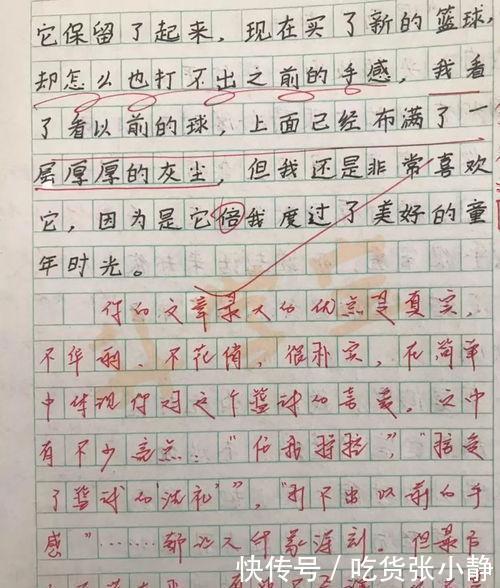 它保留了起来，现在买了新的篮球，
却怎么也打不出之前的手感，我看
了看以前的球，上面已经布满了一
层厚厚的灰尘，但我还是非常喜欢
它，因为是它倍我度过了美好的童
年时光。
你的文章最大的优点是真实，
不华丽、不花俏，很朴实，在简单
中体现你对这个篮球的喜爱。文中
有不少亮点："任我 "，"接受
了篮球的'洗礼'"，"打不出以前的手
感"……都让人印象深刻。但最后
快传号/吃货张小静